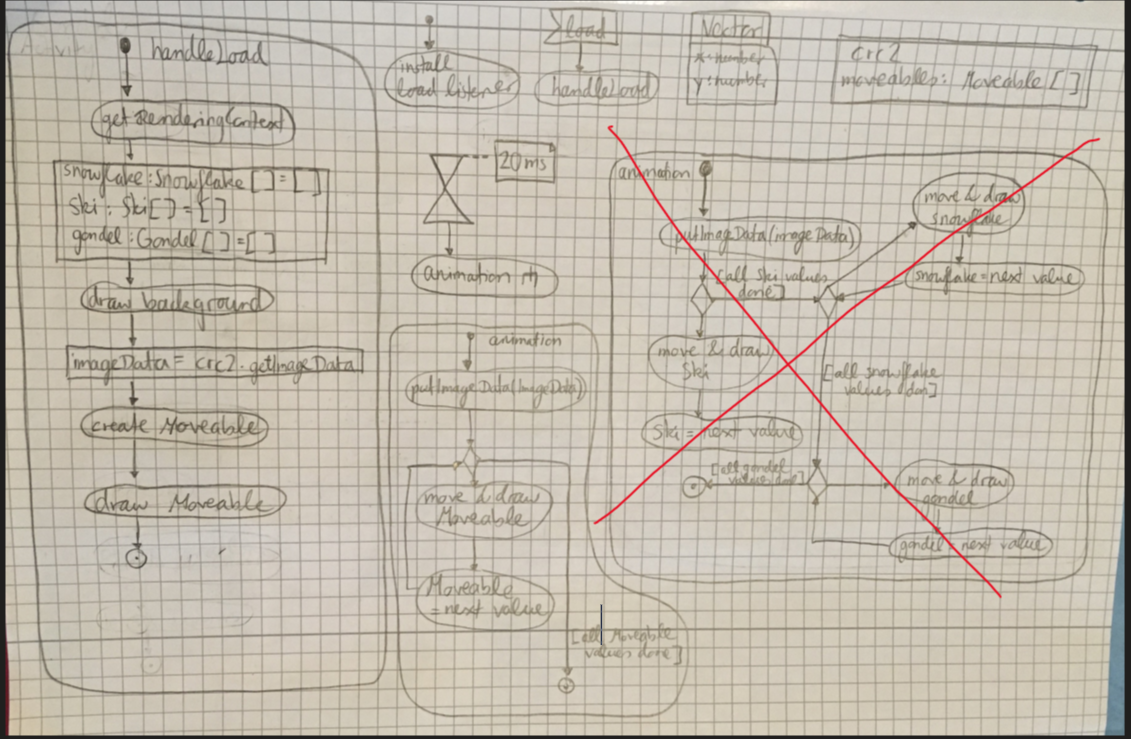 handleLoad
getRenderingContext
snowflake: Snowflake[] = []
Ski: Ski[] = []
gondel: Gondel[] = []
draw background
imageData = crc2.getImageData
create Moveable
draw Moveable
install
load listener
load
handleLoad
Vector
x: number
y: number
crc2
moveables: Moveable[]
20ms
animation
animation
putImageData(imageData)
move & draw
Moveable
Moveable
= next value
[all Moveable
values done]
animation
putImagData(imageData)
[all Ski values
done]
move & draw
Ski
Ski = next value
move & draw
snowflake
snowflake = next value
[all snowflake
values
[all gondel
values done]
move & draw
gondel
gondel = next value